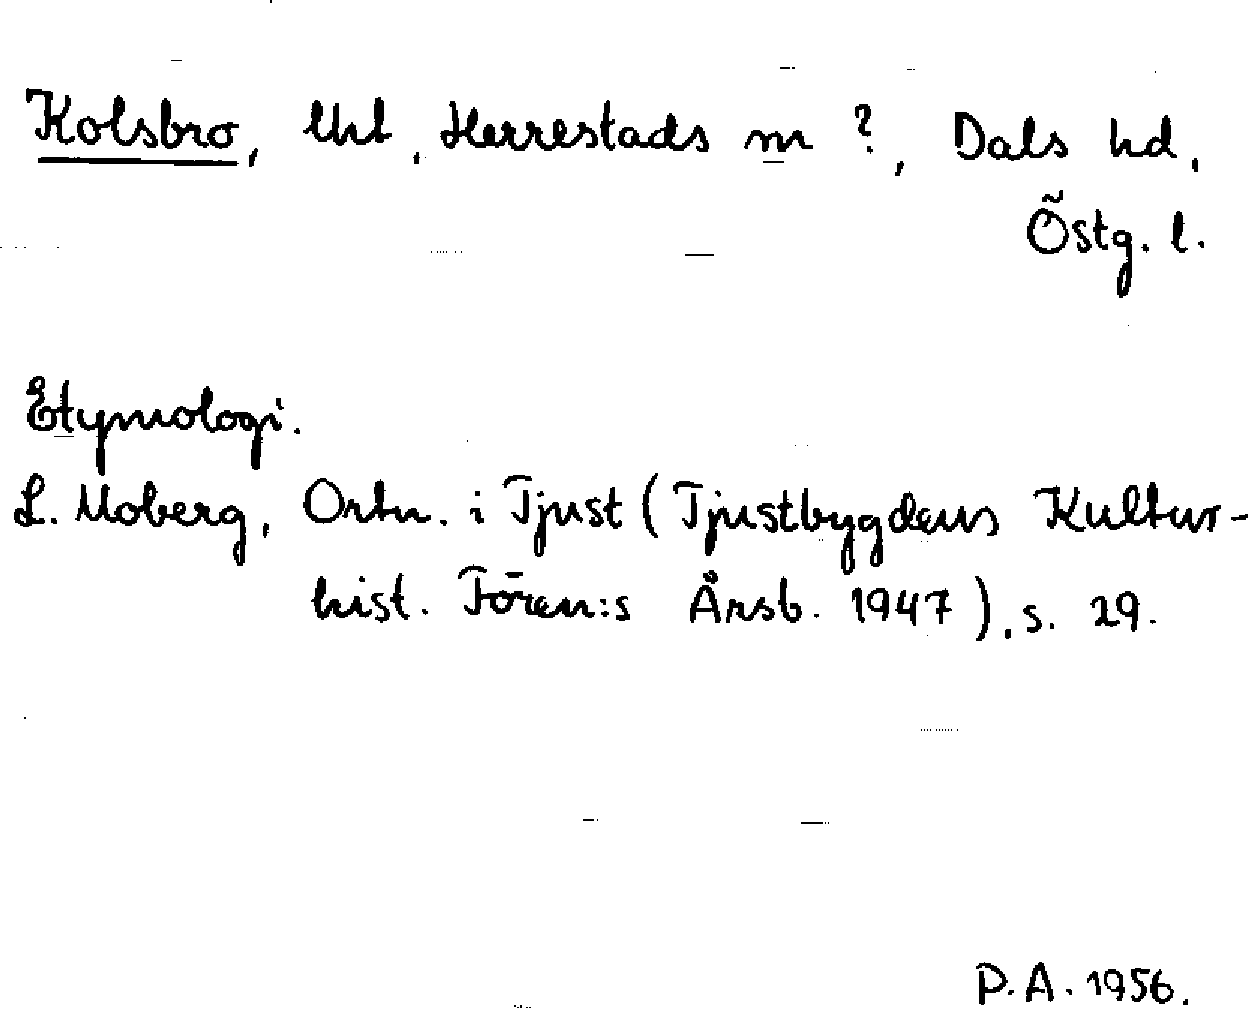 Kolsbro, tht, Herrestads sn ?, Dals hd,
Östg. l.
Etymologi.
L. Moberg, Ortn. i Tjust (Tjustbygdens Kultur-
hist. Fören:s Årsb. 1947), s. 29.
P.A. 1956.